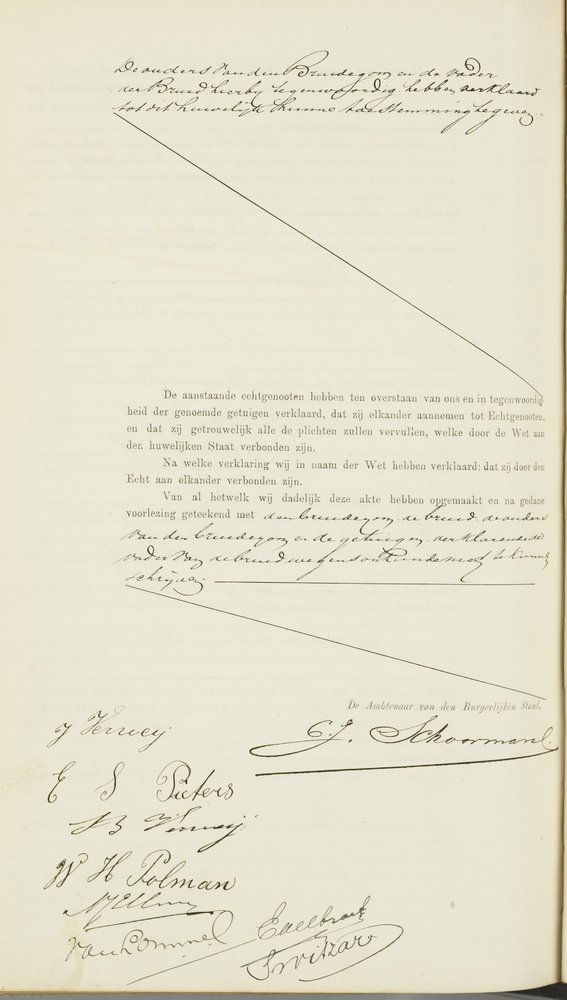 De ouders van den Bruidegom en de vader
der Bruid hierby tegenwoordig hebben verklaard
tot dit huwelijk hunne toestemming te geven
De aanstaande echtgenooten hebben ten overstaan van ons en in tegenwoordig-
heid der genoemde getuigen verklaard, dat zij elkander aannemen tot Echtgenooten,
en dat zij getrouwelijk alle de plichten zullen vervullen, welke door de Wet aan
den huwelijken Staat verbonden zijn.
Na welke verklaring wij in naam der Wet hebben verklaard: dat zij door den
Echt aan elkander verbonden zijn.
Van al hetwelk wij dadelijk deze akte hebben opgemaakt en na gedane
voorlezing geteekend met den bruidegom, de bruid, de ouders
van den bruidegom en de getuigen, verklarende de
vader van de bruid wegens onkunde niet te kunnen
schrijven.
De Ambtenaar van den Burgerlijken Stand,
J Verweij
C. J. Schoorman
E S Pieters
Verweij
W H Polman
van Lommel